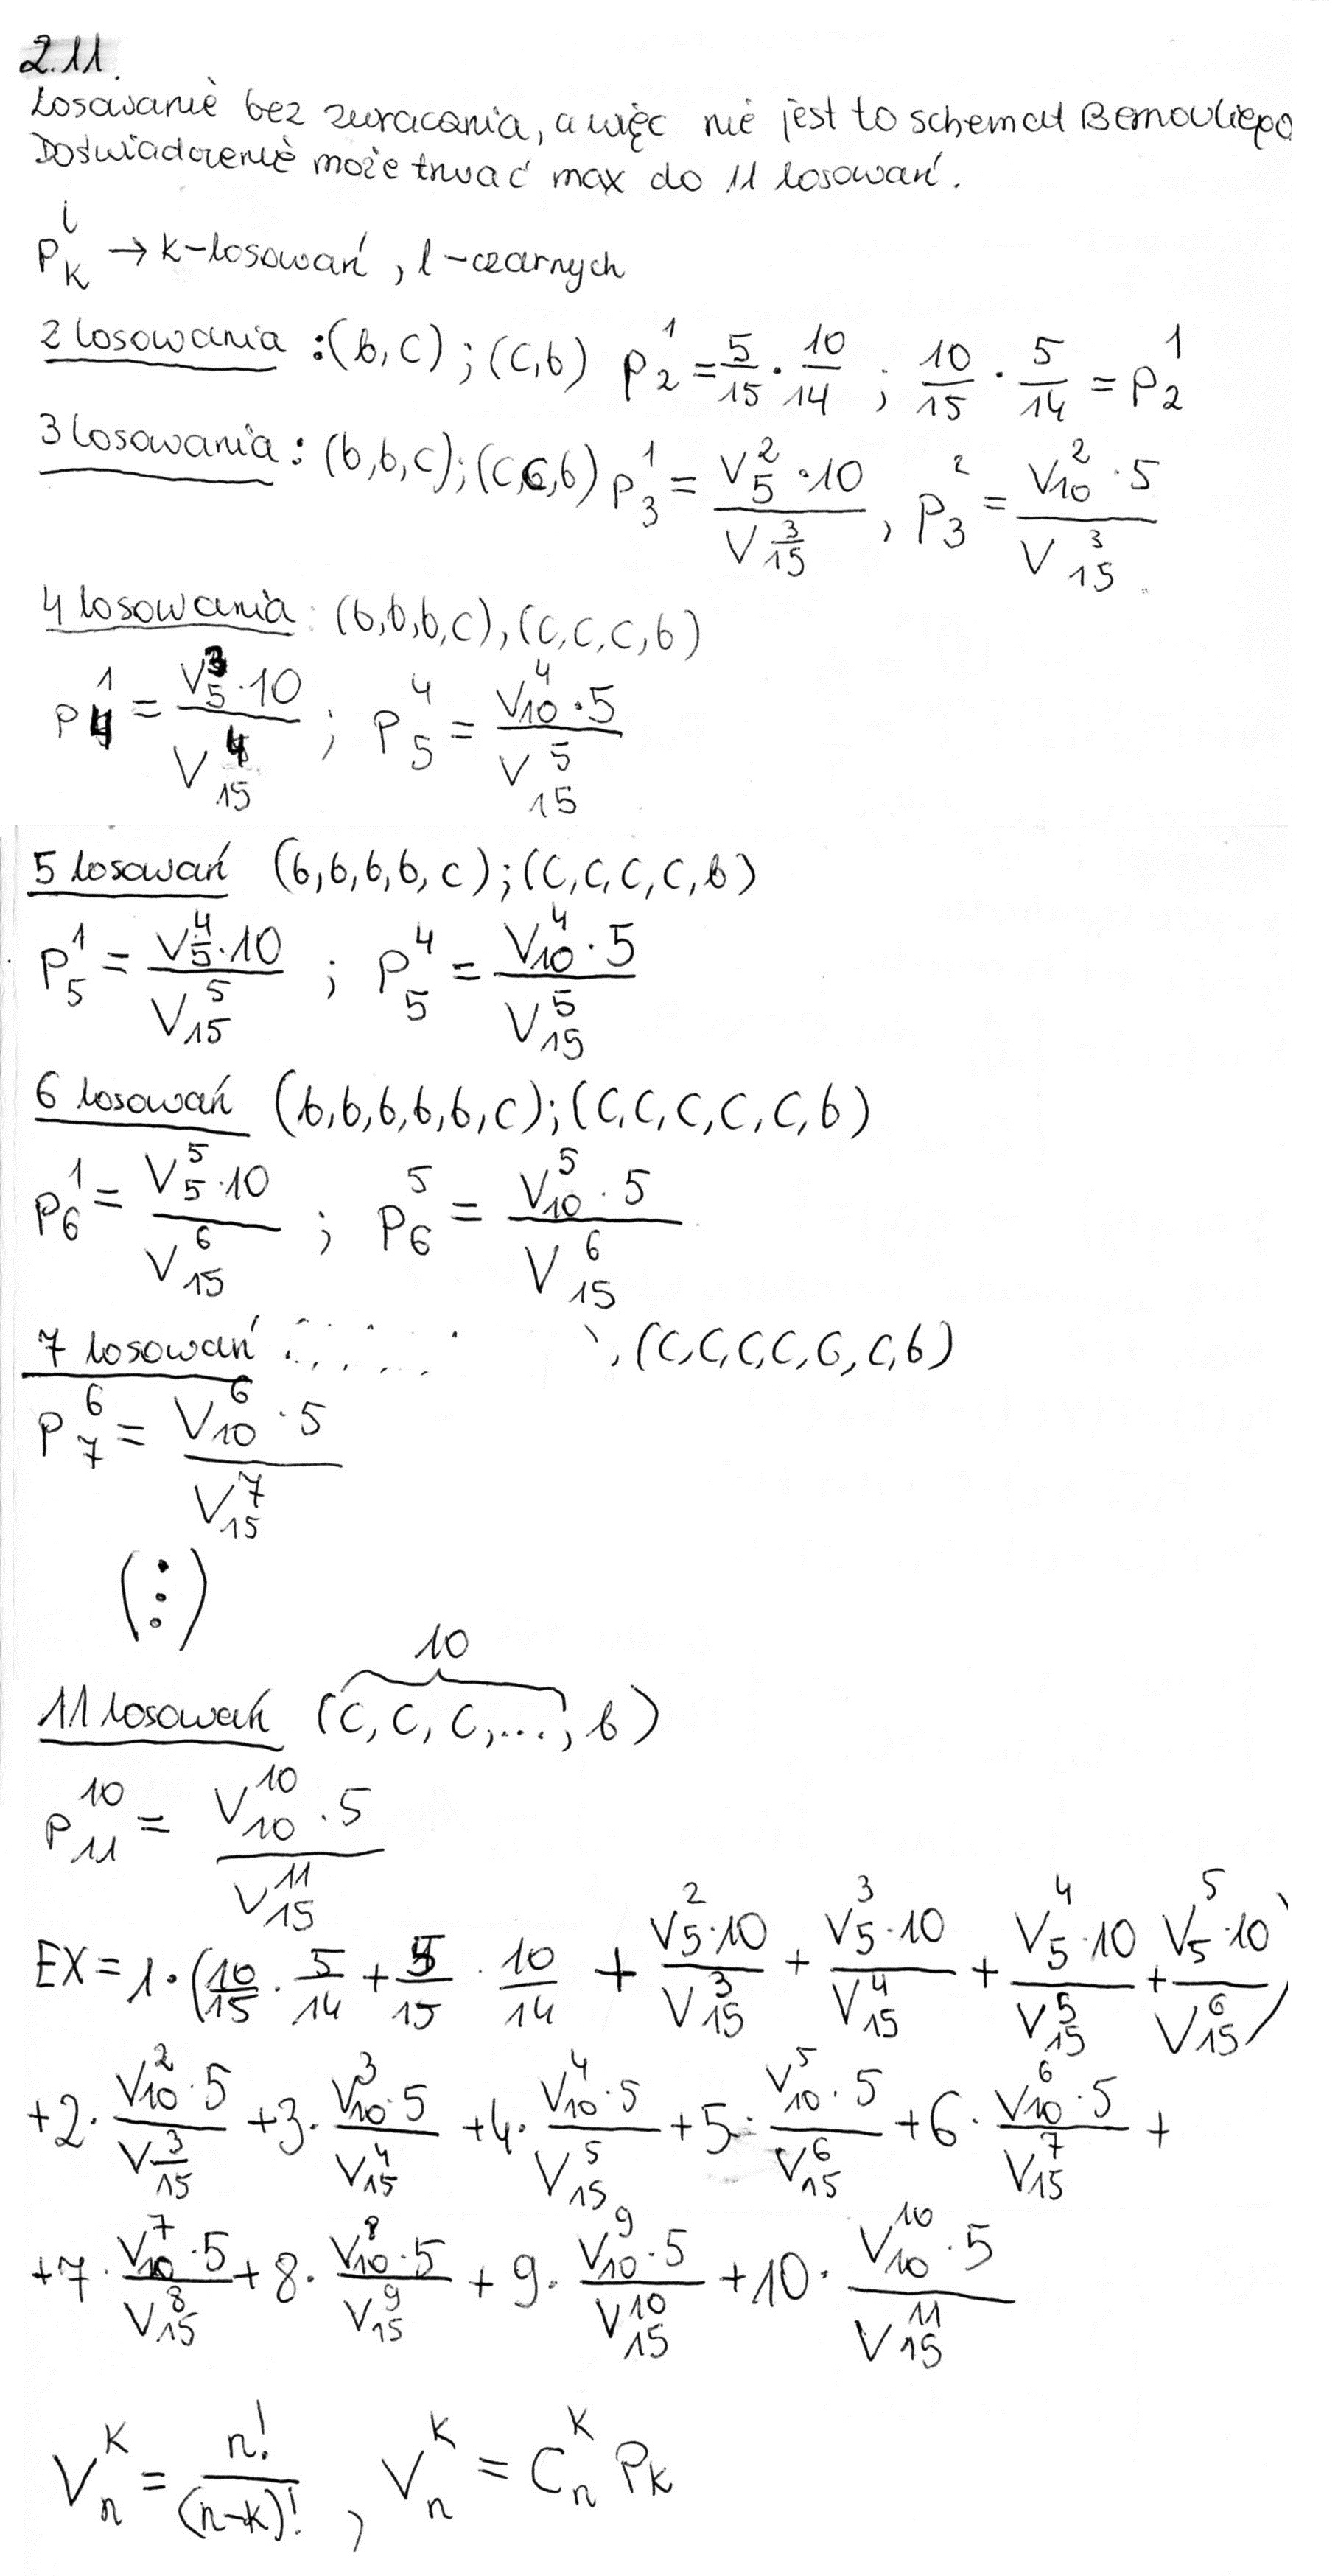 2.11.
Losowanie bez zwracania, a więc nie jest to schemat Bernouliego
Doświadczenie może trwać max do 11 losowań.
P_k^l → k-losowań, l-czarnych
2 losowania : (b, c) ; (c, b) P_2^1 = 5/15 · 10/14 ; 10/15 · 5/14 = P_2^1
3 losowania : (b, b, c) ; (c, c, b) P_3^1 = (V_5^2 · 10)/(V_15^3) , P_3^2 = (V_10^2 · 5)/(V_15^3)
4 losowania : (b, b, b, c), (c, c, c, b)
P_4^1 = (V_5^3 · 10)/(V_15^4) ; P_5^4 = (V_10^4 · 5)/(V_15^5)
5 losowań (b, b, b, b, c) ; (c, c, c, c, b)
P_5^1 = (V_5^4 · 10)/(V_15^5) ; P_5^4 = (V_10^4 · 5)/(V_15^5)
6 losowań (b, b, b, b, b, c) ; (c, c, c, c, c, b)
P_6^1 = (V_5^5 · 10)/(V_15^6) ; P_6^5 = (V_10^5 · 5)/(V_15^6)
7 losowań , (c, c, c, c, c, c, b)
P_7^6 = (V_10^6 · 5)/(V_15^7)
(⋮)
10
11 losowań (c, c, c, ..., b)
P_11^10 = (V_10^10 · 5)/(V_15^11)
EX = 1 · (10/15 · 5/14 + 5/15 · 10/14 + (V_5^2 · 10)/(V_15^3) + (V_5^3 · 10)/(V_15^4) + (V_5^4 · 10)/(V_15^5) + (V_5^5 · 10)/(V_15^6))
+ 2 · (V_10^2 · 5)/(V_15^3) + 3 · (V_10^3 · 5)/(V_15^4) + 4 · (V_10^4 · 5)/(V_15^5) + 5 · (V_10^5 · 5)/(V_15^6) + 6 · (V_10^6 · 5)/(V_15^7) +
+ 7 · (V_10^7 · 5)/(V_15^8) + 8 · (V_10^8 · 5)/(V_15^9) + 9 · (V_10^9 · 5)/(V_15^10) + 10 · (V_10^10 · 5)/(V_15^11)
V_n^k = n!/(n-k)! , V_n^k = C_n^k P_k